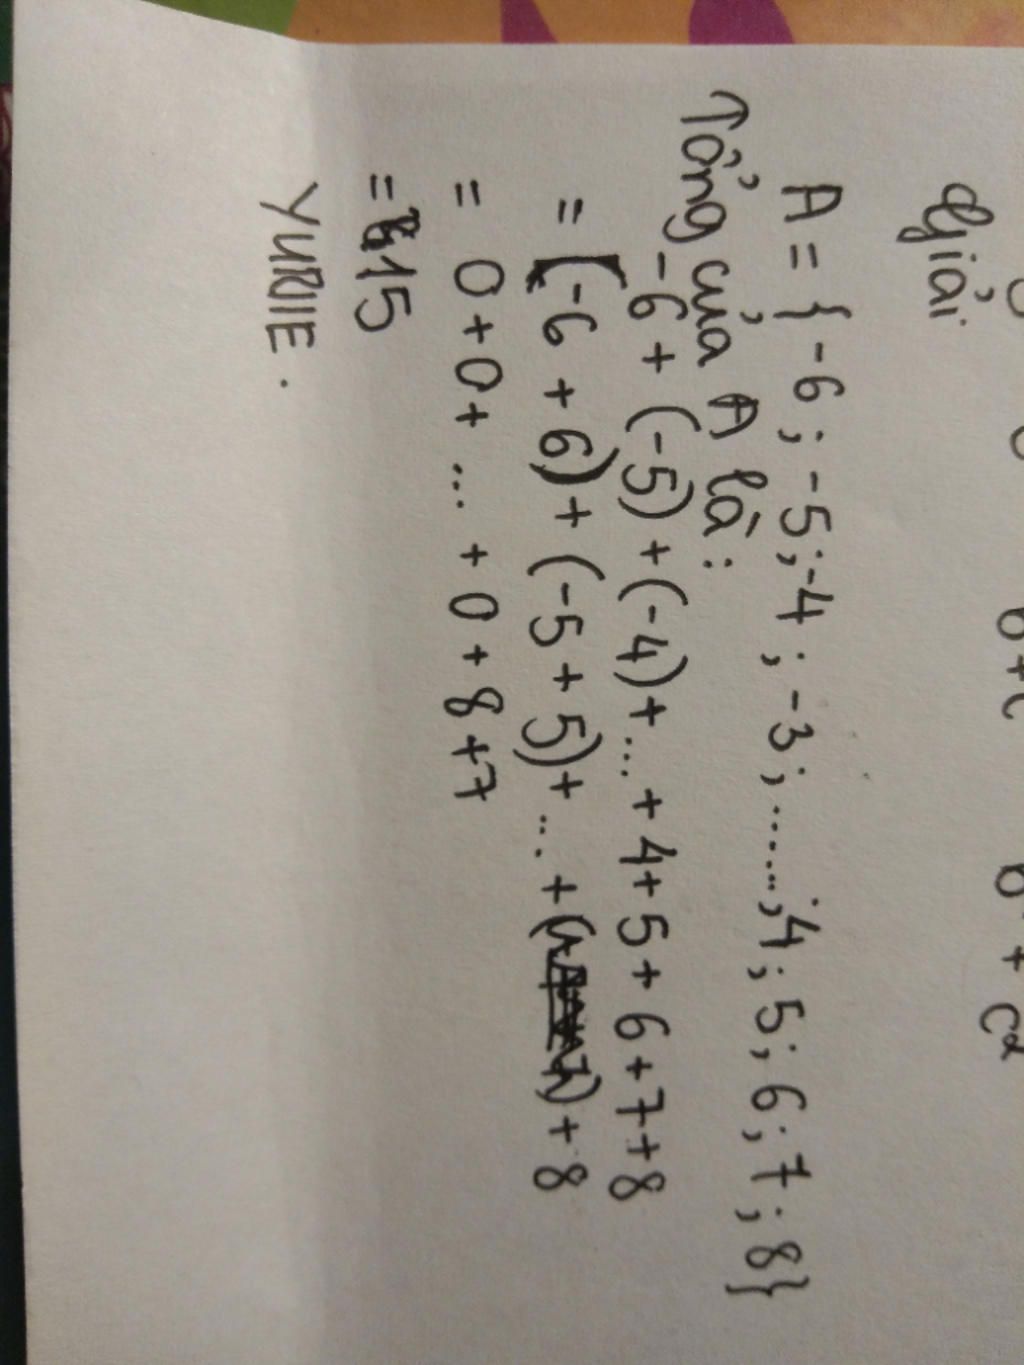 Giải
A = { -6 ; -5 ; -4 ; -3 ; ......; 4 ; 5 ; 6 ; 7 ; 8}
Tổng của A là :
-6 + (-5) + (-4) + ... + 4 + 5 + 6 + 7 + 8
= (-6 + 6) + (-5 + 5) + ... + + 8
= 0 + 0 + ... + 0 + 8 + 7
= 15
YURIE .